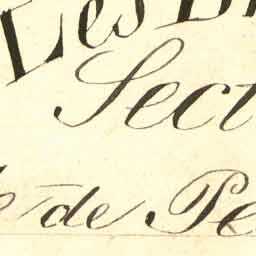 Les
Sect
de Pe